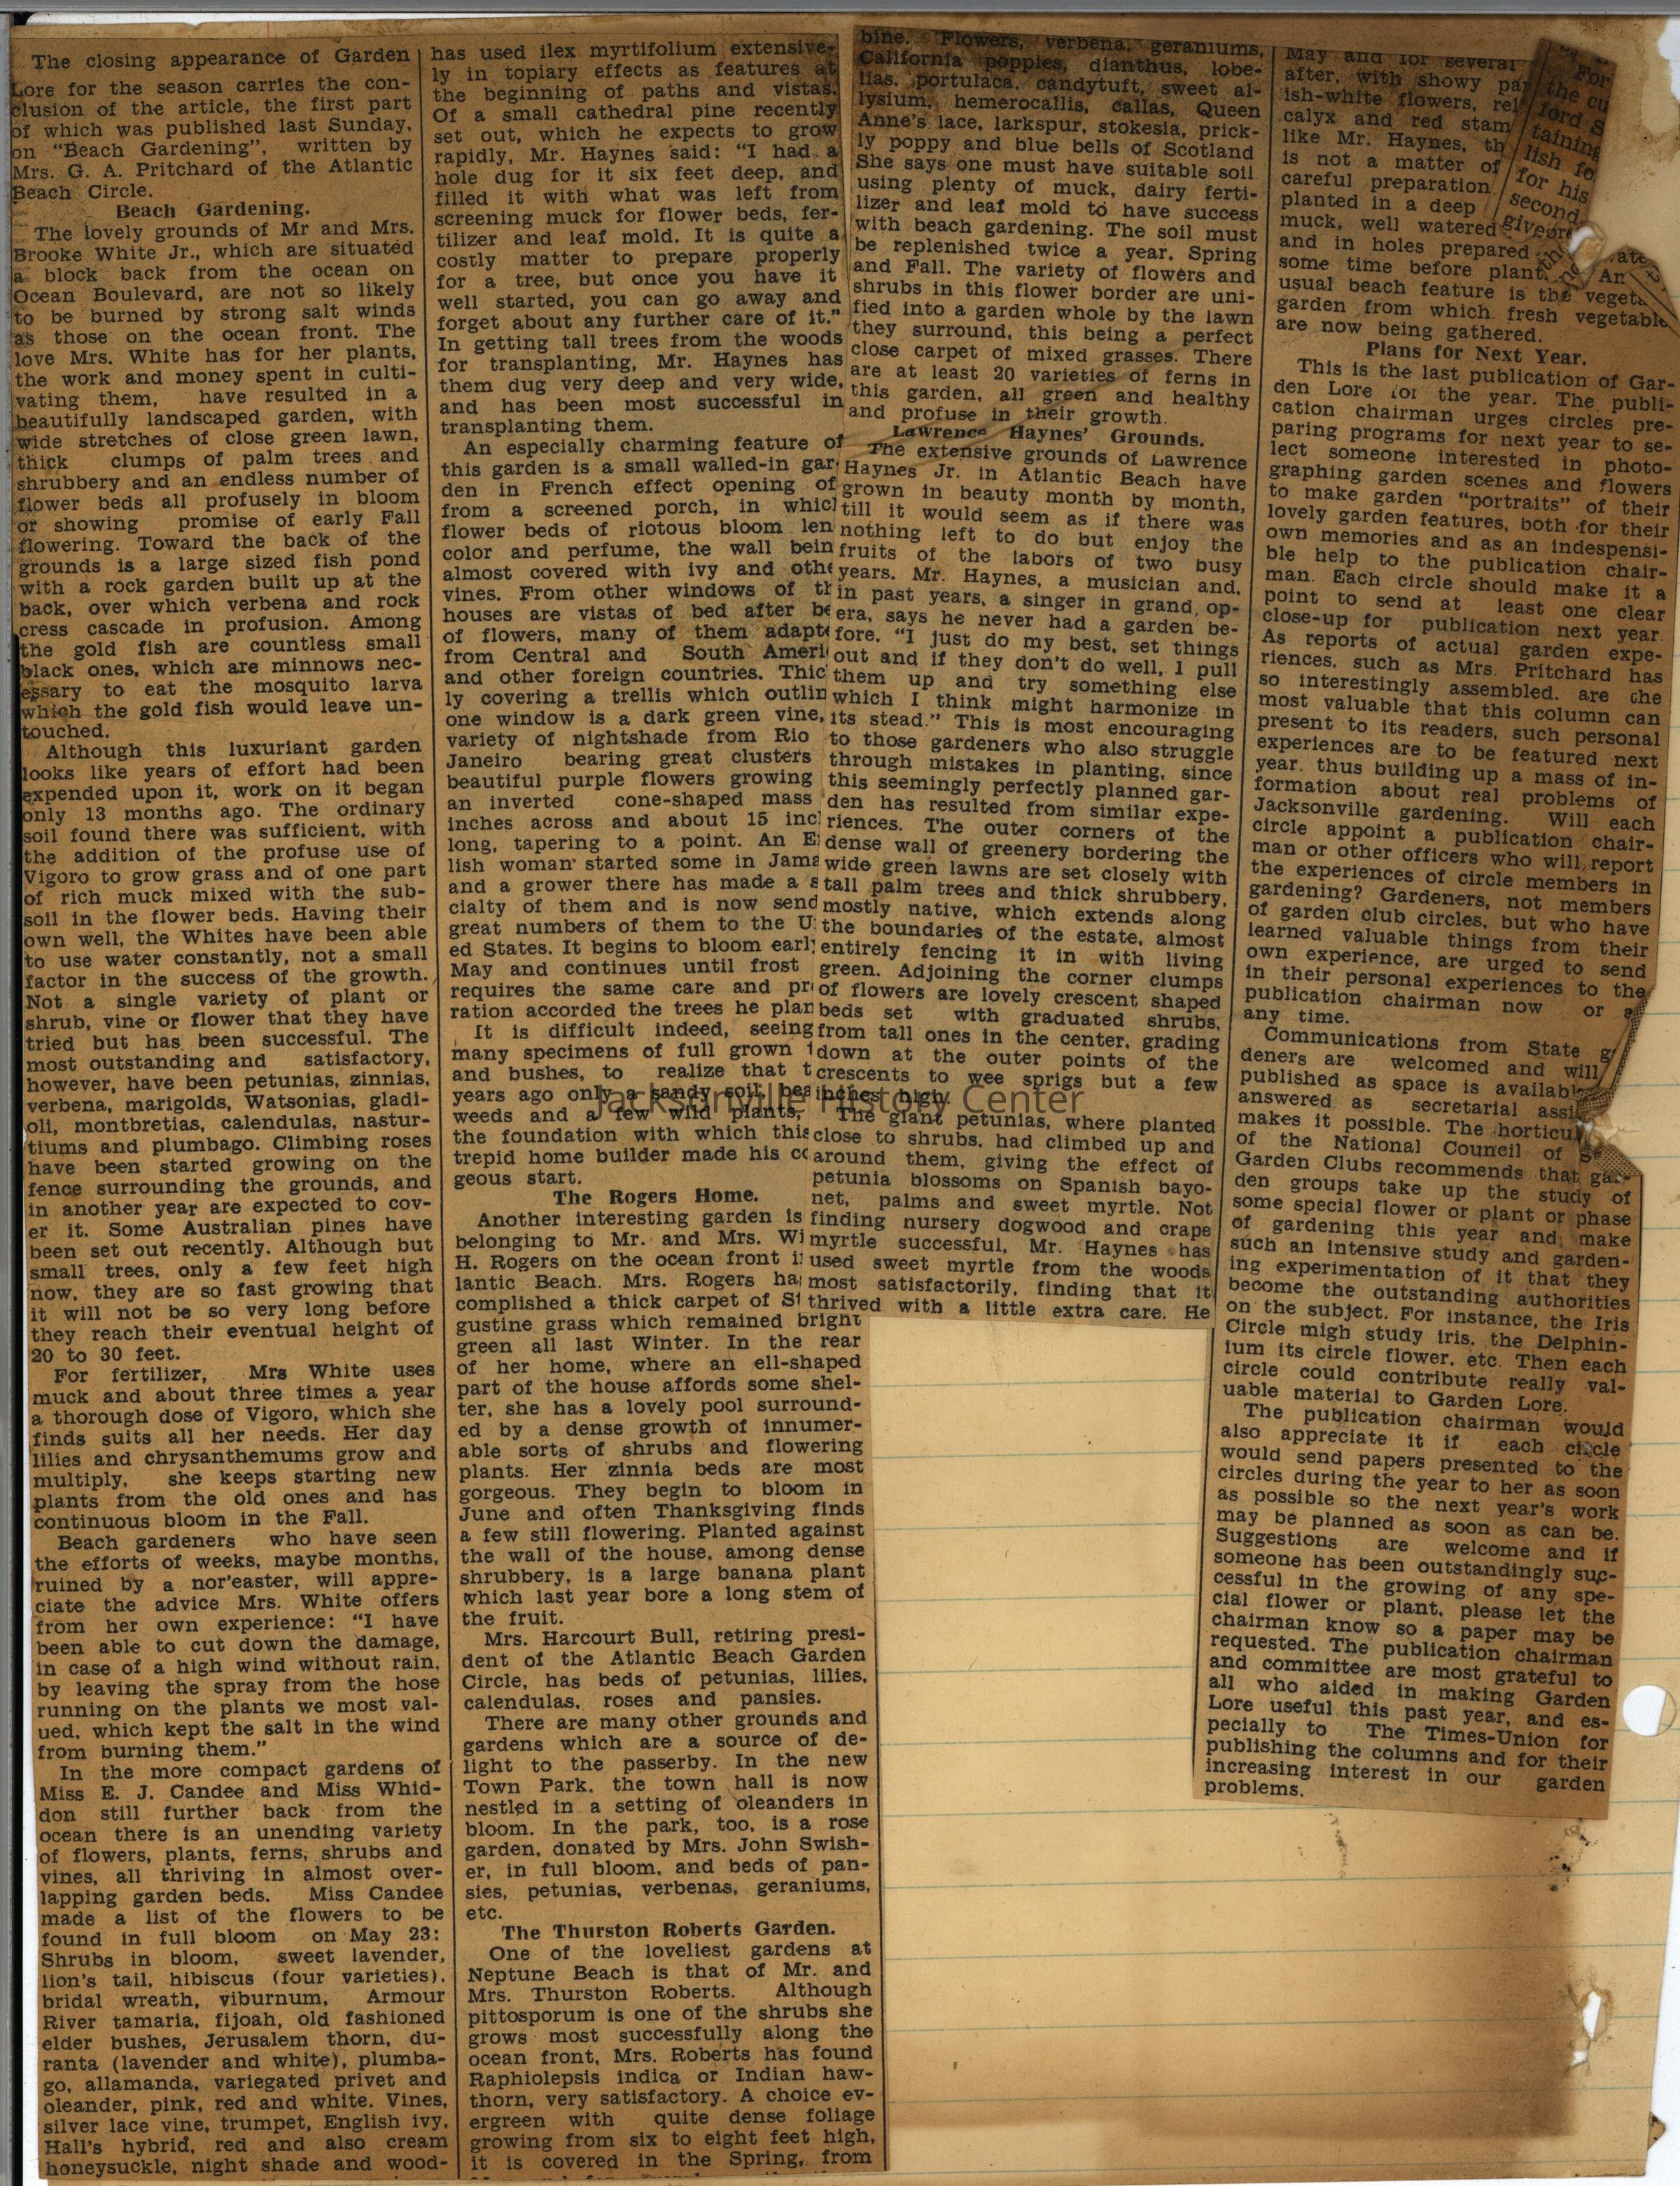 The closing appearance of Garden
Lore for the season carries the con-
clusion of the article, the first part
of which was published last Sunday,
on "Beach Gardening", written by
Mrs. G. A. Pritchard of the Atlantic
Beach Circle.
Beach Gardening.
The lovely grounds of Mr and Mrs.
Brooke White Jr., which are situated
a block back from the ocean on
Ocean Boulevard, are not so likely
to be burned by strong salt winds
as those on the ocean front. The
love Mrs. White has for her plants,
the work and money spent in culti-
vating them, have resulted in a
beautifully landscaped garden, with
wide stretches of close green lawn,
thick clumps of palm trees and
shrubbery and an endless number of
flower beds all profusely in bloom
or showing promise of early Fall
flowering. Toward the back of the
grounds is a large sized fish pond
with a rock garden built up at the
back, over which verbena and rock
cress cascade in profusion. Among
the gold fish are countless small
black ones, which are minnows nec-
essary to eat the mosquito larva
which the gold fish would leave un-
touched.
Although this luxuriant garden
looks like years of effort had been
expended upon it, work on it began
only 13 months ago. The ordinary
soil found there was sufficient, with
the addition of the profuse use of
Vigoro to grow grass and of one part
of rich muck mixed with the sub-
soil in the flower beds. Having their
own well, the Whites have been able
to use water constantly, not a small
factor in the success of the growth.
Not a single variety of plant or
shrub, vine or flower that they have
tried but has been successful. The
most outstanding and satisfactory,
however, have been petunias, zinnias,
verbena, marigolds, Watsonias, gladi-
oli, montbretias, calendulas, nastur-
tiums and plumbago. Climbing roses
have been started growing on the
fence surrounding the grounds, and
in another year are expected to cov-
er it. Some Australian pines have
been set out recently. Although but
small trees, only a few feet high
now, they are so fast growing that
it will not be so very long before
they reach their eventual height of
20 to 30 feet.
For fertilizer, Mrs White uses
muck and about three times a year
a thorough dose of Vigoro, which she
finds suits all her needs. Her day
lilies and chrysanthemums grow and
multiply, she keeps starting new
plants from the old ones and has
continuous bloom in the Fall.
Beach gardeners who have seen
the efforts of weeks, maybe months,
ruined by a nor'easter, will appre-
ciate the advice Mrs. White offers
from her own experience: "I have
been able to cut down the damage,
in case of a high wind without rain,
by leaving the spray from the hose
running on the plants we most val-
ued, which kept the salt in the wind
from burning them."
In the more compact gardens of
Miss E. J. Candee and Miss Whid-
don still further back from the
ocean there is an unending variety
of flowers, plants, ferns, shrubs and
vines, all thriving in almost over-
lapping garden beds. Miss Candee
made a list of the flowers to be
found in full bloom on May 23:
Shrubs in bloom, sweet lavender,
lion's tail, hibiscus (four varieties),
bridal wreath, viburnum, Armour
River tamaria, fijoah, old fashioned
elder bushes, Jerusalem thorn, du-
ranta (lavender and white), plumba-
go, allamanda, variegated privet and
oleander, pink, red and white. Vines,
silver lace vine, trumpet, English ivy,
Hall's hybrid, red and also cream
honeysuckle, night shade and wood-
has used ilex myrtifolium extensive-
ly in topiary effects as features at
the beginning of paths and vistas.
Of a small cathedral pine recently
set out, which he expects to grow
rapidly, Mr. Haynes said: "I had a
hole dug for it six feet deep, and
filled it with what was left from
screening muck for flower beds, fer-
tilizer and leaf mold. It is quite a
costly matter to prepare properly
for a tree, but once you have it
well started, you can go away and
forget about any further care of it."
In getting tall trees from the woods
for transplanting, Mr. Haynes has
them dug very deep and very wide,
and has been most successful in
transplanting them.
An especially charming feature of
this garden is a small walled-in gar-
den in French effect opening of
from a screened porch, in whic
flower beds of riotous bloom len
color and perfume, the wall bein
almost covered with ivy and othe
vines. From other windows of th
houses are vistas of bed after be
of flowers, many of them adapte
from Central and South Ameri
and other foreign countries. Thic
ly covering a trellis which outlin
one window is a dark green vine,
variety of nightshade from Rio
Janeiro bearing great clusters
beautiful purple flowers growing
an inverted cone-shaped mass
inches across and about 15 inc
long, tapering to a point. An E
lish woman started some in Jama
and a grower there has made a s
cialty of them and is now send
great numbers of them to the U
ed States. It begins to bloom earl
May and continues until frost
requires the same care and pr
ration accorded the trees he plan
It is difficult indeed, seeing
many specimens of full grown t
and bushes, to realize that t
years ago only a sandy soil, bea
weeds and a few wild plants,
the foundation with which this
trepid home builder made his co
geous start.
The Rogers Home.
Another interesting garden is
belonging to Mr. and Mrs. Wi
H. Rogers on the ocean front i
lantic Beach. Mrs. Rogers ha
complished a thick carpet of St
gustine grass which remained bright
green all last Winter. In the rear
of her home, where an ell-shaped
part of the house affords some shel-
ter, she has a lovely pool surround-
ed by a dense growth of innumer-
able sorts of shrubs and flowering
plants. Her zinnia beds are most
gorgeous. They begin to bloom in
June and often Thanksgiving finds
a few still flowering. Planted against
the wall of the house, among dense
shrubbery, is a large banana plant
which last year bore a long stem of
the fruit.
Mrs. Harcourt Bull, retiring presi-
dent of the Atlantic Beach Garden
Circle, has beds of petunias, lilies,
calendulas, roses and pansies.
There are many other grounds and
gardens which are a source of de-
light to the passerby. In the new
Town Park, the town hall is now
nestled in a setting of oleanders in
bloom. In the park, too, is a rose
garden, donated by Mrs. John Swish-
er, in full bloom, and beds of pan-
sies, petunias, verbenas, geraniums,
etc.
The Thurston Roberts Garden.
One of the loveliest gardens at
Neptune Beach is that of Mr. and
Mrs. Thurston Roberts. Although
pittosporum is one of the shrubs she
grows most successfully along the
ocean front, Mrs. Roberts has found
Raphiolepsis indica or Indian haw-
thorn, very satisfactory. A choice ev-
ergreen with quite dense foliage
growing from six to eight feet high,
it is covered in the Spring, from
bine. Flowers, verbena, geraniums,
California poppies, dianthus, lobe-
lias, portulaca, candytuft, sweet al-
lysium, hemerocallis, callas, Queen
Anne's lace, larkspur, stokesia, prick-
ly poppy and blue bells of Scotland
She says one must have suitable soil
using plenty of muck, dairy ferti-
lizer and leaf mold to have success
with beach gardening. The soil must
be replenished twice a year, Spring
and Fall. The variety of flowers and
shrubs in this flower border are uni-
fied into a garden whole by the lawn
they surround, this being a perfect
close carpet of mixed grasses. There
are at least 20 varieties of ferns in
this garden, all green and healthy
and profuse in their growth.
Lawrence Haynes' Grounds.
The extensive grounds of Lawrence
Haynes Jr. in Atlantic Beach have
grown in beauty month by month,
till it would seem as if there was
nothing left to do but enjoy the
fruits of the labors of two busy
years. Mr. Haynes, a musician and,
in past years, a singer in grand op-
era, says he never had a garden be-
fore. "I just do my best, set things
out and if they don't do well, I pull
them up and try something else
which I think might harmonize in
its stead." This is most encouraging
to those gardeners who also struggle
through mistakes in planting, since
this seemingly perfectly planned gar-
den has resulted from similar expe-
riences. The outer corners of the
dense wall of greenery bordering the
wide green lawns are set closely with
tall palm trees and thick shrubbery,
mostly native, which extends along
the boundaries of the estate, almost
entirely fencing it in with living
green. Adjoining the corner clumps
of flowers are lovely crescent shaped
beds set with graduated shrubs,
from tall ones in the center, grading
down at the outer points of the
crescents to wee sprigs but a few
inches high.
The giant petunias, where planted
close to shrubs, had climbed up and
around them, giving the effect of
petunia blossoms on Spanish bayo-
net, palms and sweet myrtle. Not
finding nursery dogwood and crape
myrtle successful, Mr. Haynes has
used sweet myrtle from the woods
most satisfactorily, finding that it
thrived with a little extra care. He
May and for several
after, with showy pa
ish-white flowers, rel
calyx and red stam
like Mr. Haynes, th
is not a matter of
careful preparation
planted in a deep
muck, well watered
and in holes prepared
some time before plant. An
usual beach feature is the vegeta
garden from which fresh vegetable
are now being gathered.
For
the cu
ford S
taining
lish fo
for his
second
give
Plans for Next Year.
This is the last publication of Gar-
den Lore for the year. The publi-
cation chairman urges circles pre-
paring programs for next year to se-
lect someone interested in photo-
graphing garden scenes and flowers
to make garden "portraits" of their
lovely garden features, both for their
own memories and as an indespensi-
ble help to the publication chair-
man. Each circle should make it a
point to send at least one clear
close-up for publication next year.
As reports of actual garden expe-
riences, such as Mrs. Pritchard has
so interestingly assembled, are the
most valuable that this column can
present to its readers, such personal
experiences are to be featured next
year, thus building up a mass of in-
formation about real problems of
Jacksonville gardening. Will each
circle appoint a publication chair-
man or other officers who will report
the experiences of circle members in
gardening? Gardeners, not members
of garden club circles, but who have
learned valuable things from their
own experience, are urged to send
in their personal experiences to the
publication chairman now or a
any time.
Communications from State g
deners are welcomed and will
published as space is availab
answered as secretarial assi
makes it possible. The horticu
of the National Council of
Garden Clubs recommends that gar-
den groups take up the study of
some special flower or plant or phase
of gardening this year and make
such an intensive study and garden-
ing experimentation of it that they
become the outstanding authorities
on the subject. For instance, the Iris
Circle migh study iris, the Delphin-
ium its circle flower, etc. Then each
circle could contribute really val-
uable material to Garden Lore.
The publication chairman would
also appreciate it if each circle
would send papers presented to the
circles during the year to her as soon
as possible so the next year's work
may be planned as soon as can be.
Suggestions are welcome and if
someone has been outstandingly suc-
cessful in the growing of any spe-
cial flower or plant, please let the
chairman know so a paper may be
requested. The publication chairman
and committee are most grateful to
all who aided in making Garden
Lore useful this past year, and es-
pecially to The Times-Union for
publishing the columns and for their
increasing interest in our garden
problems.
Jacksonville History Center